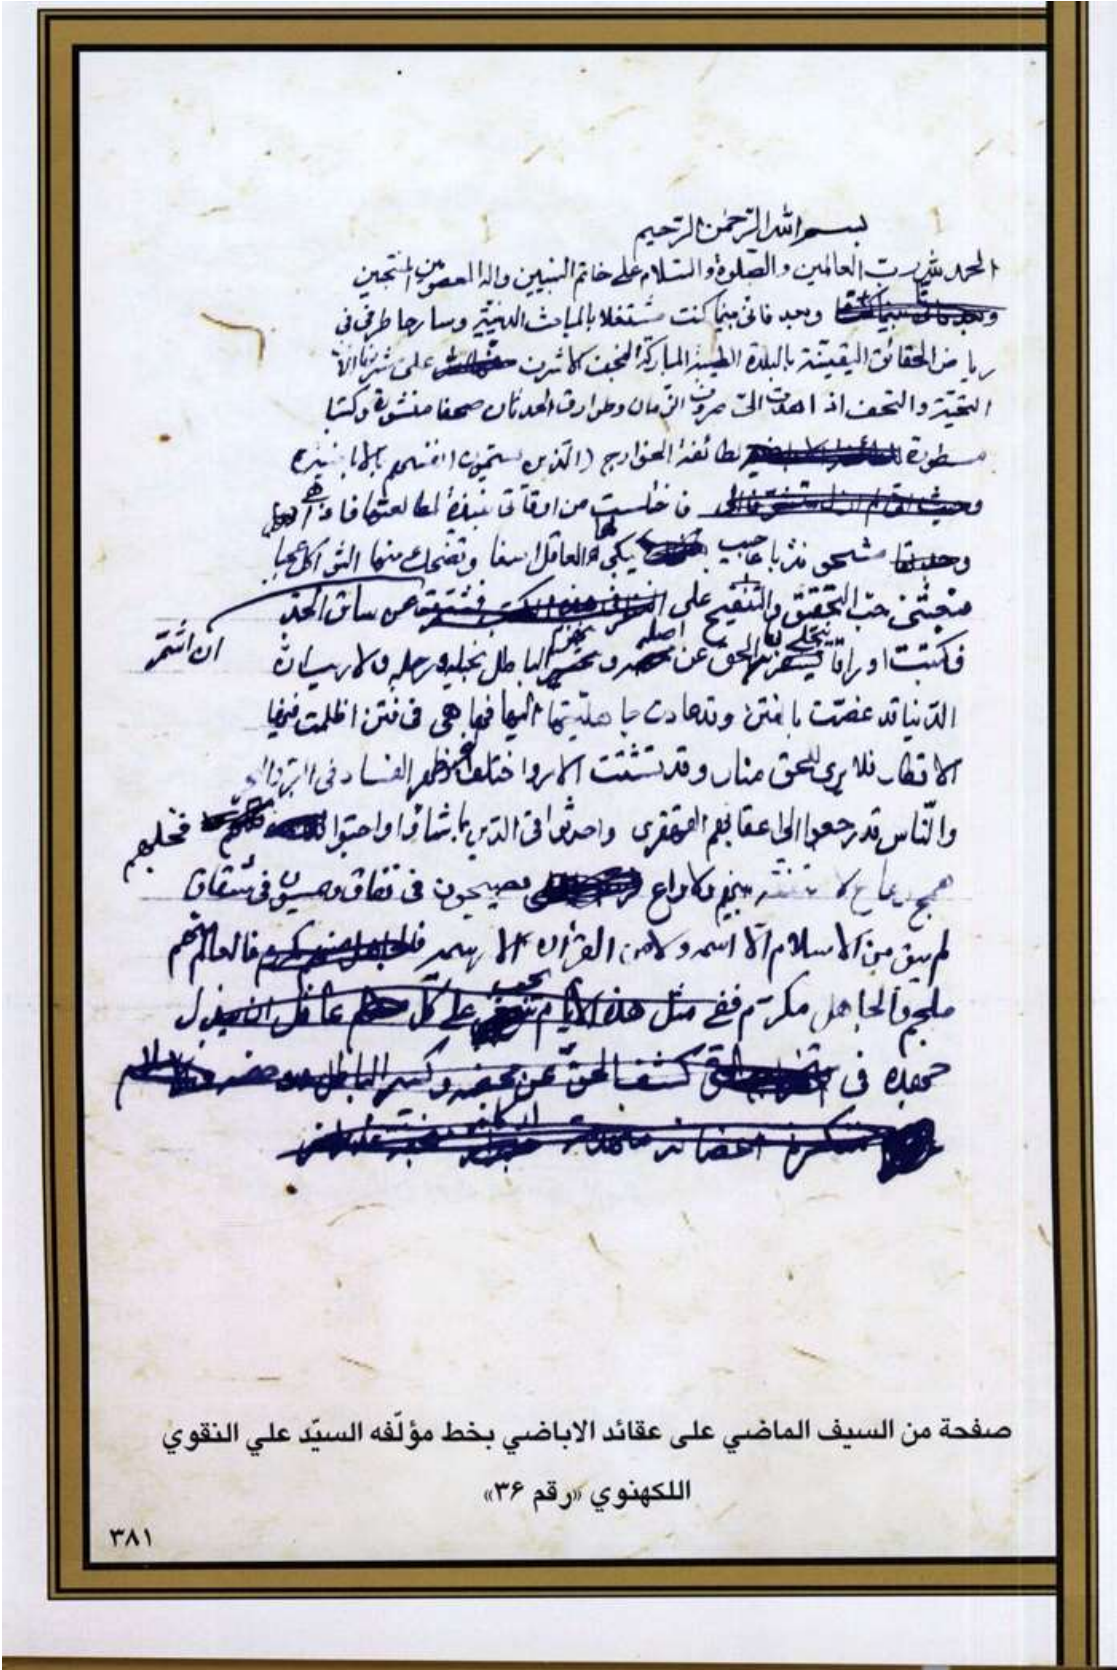 بسم الله الرحمن الرحيم
الحمد لله رب العالمين والصلوة والسلام على خاتم النبيين واله المعصومين المنتجبين
وبعد فانى بينما كنت وبعد فانى بينما كنت مشتغلا بالمباحث الدينية وسارحا طرفى فى
رياض الحقائق اليقينية بالبلدة الطيبة المباركة النجف الاشرف على
التحية والتحف اذ اهدت الى صروف الزمان وطوارق الحدثان صحفا منشورة وكتبا
مسطورة لطائفة الخوارج (الذين يسمون انفسهم بالاباضية)
وحيث انى لم ازل فاختلست من اوقاتى نبذة لمطالعتها فاذا هى
وجدتها مشحونة باعاجيب يبكى لها العاقل اسفا وتضحك منها الثواكل عجبا
فبعثنى حب التحقيق والتنقيح على ان اشمر عن ساق الجد
فكتبت اوراقا الحق عن الباطل بخيله ورجله ولا ريب ان
الدنيا قد غصت بالفتن وقد عادت جاهليتها اليها فها هى فى فتن اظلمت فيها
الاقطار فلا يرى للحق منار وقد تشتت الاراء ظهر الفساد فى البر والبحر
والناس قد رجعوا الى اعقابهم القهقرى واحدثوا فى الدين ما شاؤا واحبوا فجلهم
همج رعاع لا فيصبحون فى نفاق ويمسون فى شقاق
لم يبق من الاسلام الا اسمه ولا من القرآن الا رسمه فالعالم
ملجم والجاهل مكرم ففى مثل هذه الايام يجب على كل عاقل ان يبذل
جهده فى كشف الحق عن محضه وكسر الباطل
صفحة من السيف الماضي على عقائد الاباضي بخط مؤلّفه السيّد علي النقوي
اللكهنوي «رقم ۳۶»
۳۸۱